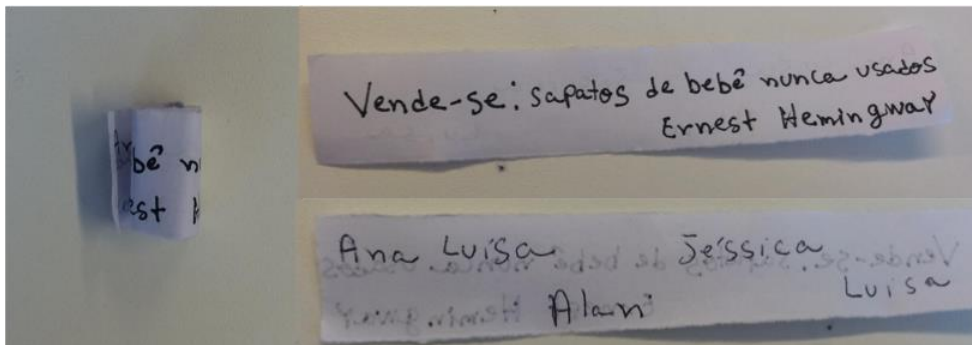 bê n
est H
Vende-se: sapatos de bebê nunca usados
Ernest Hemingway
Ana Luísa Jéssica
Luisa
Alani